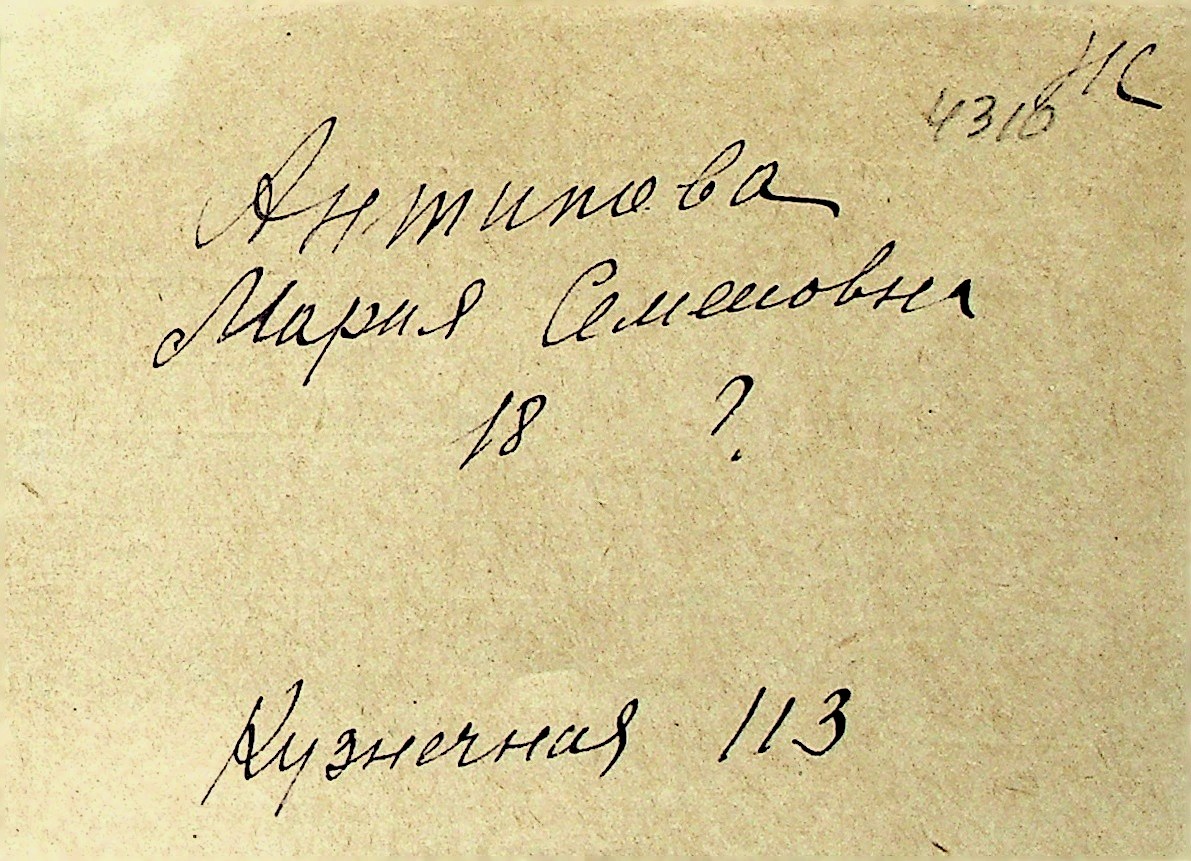 4318 НС
Антипова
Мария Семеновна
18 ?
Кузнечная 113